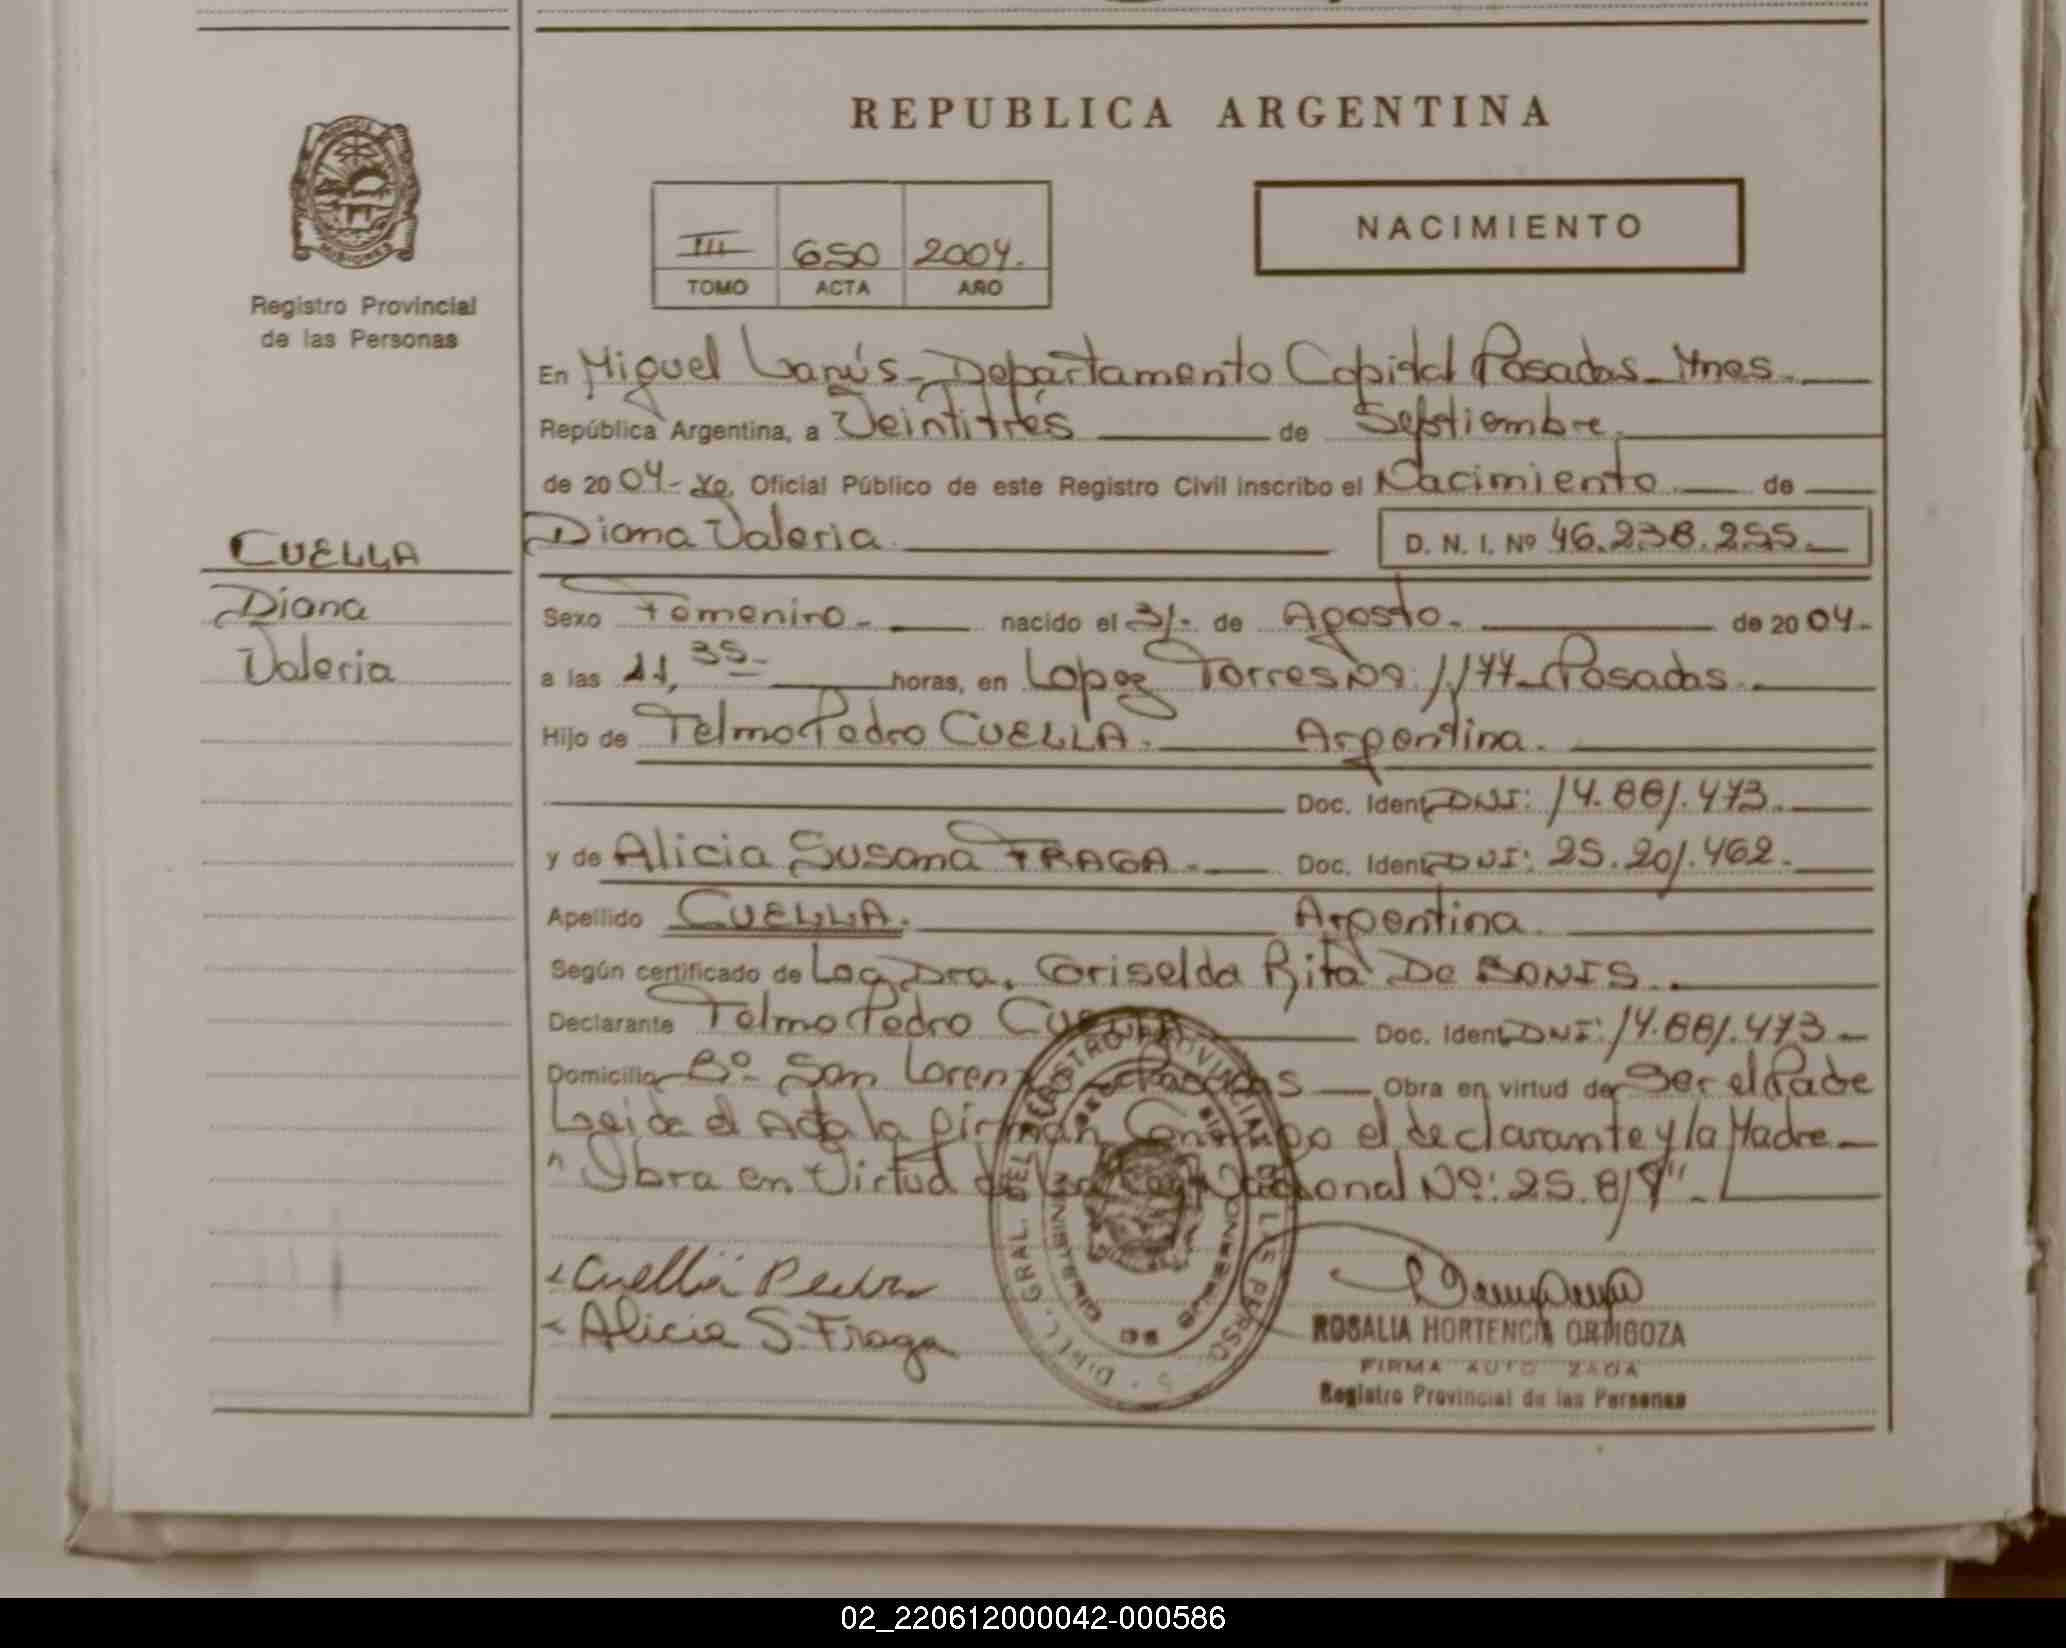 REPUBLICA ARGENTINA
NACIMIENTO
III 650 2004.
TOMO ACTA AÑO
MISIONES
Registro Provincial
de las Personas
CUELLA
Diana
Valeria
En Miguel Lanús - Departamento Capital Posadas - Mnes.
República Argentina, a Veintitrés de Septiembre
de 2004 - Yo, Oficial Público de este Registro Civil inscribo el Nacimiento de
Diana Valeria D. N. I. Nº 46.238.255.
Sexo Femenino - nacido el 31 - de Agosto - de 2004 -
a las 11,35 - horas, en Lopez Torres Nº 1177 - Posadas
Hijo de Telmo Pedro CUELLA. Argentina.
Doc. Ident. DNI: 14.881.473.
y de Alicia Susana FRAGA - Doc. Ident. DNI: 25.201.462.
Apellido CUELLA. Argentina.
Según certificado de La Dra. Griselda Rita De BONIS.
Declarante Telmo Pedro CUELLA Doc. Ident. DNI: 14.881.473 -
Domicilio Bº San Lorenzo - Posadas Obra en virtud de Ser el Padre
Leida el Acta la firman Conmigo el declarante y la Madre -
" Obra en Virtud de la Ley Nacional Nº: 25.819" -
Cuella Pedro
Alicia S. Fraga
ROSALIA HORTENCIA ORTIGOZA
FIRMA AUTORIZADA
Registro Provincial de las Personas
DIR. GRAL. DEL REGISTRO PROVINCIAL DE LAS PERSONAS
02_220612000042-000586